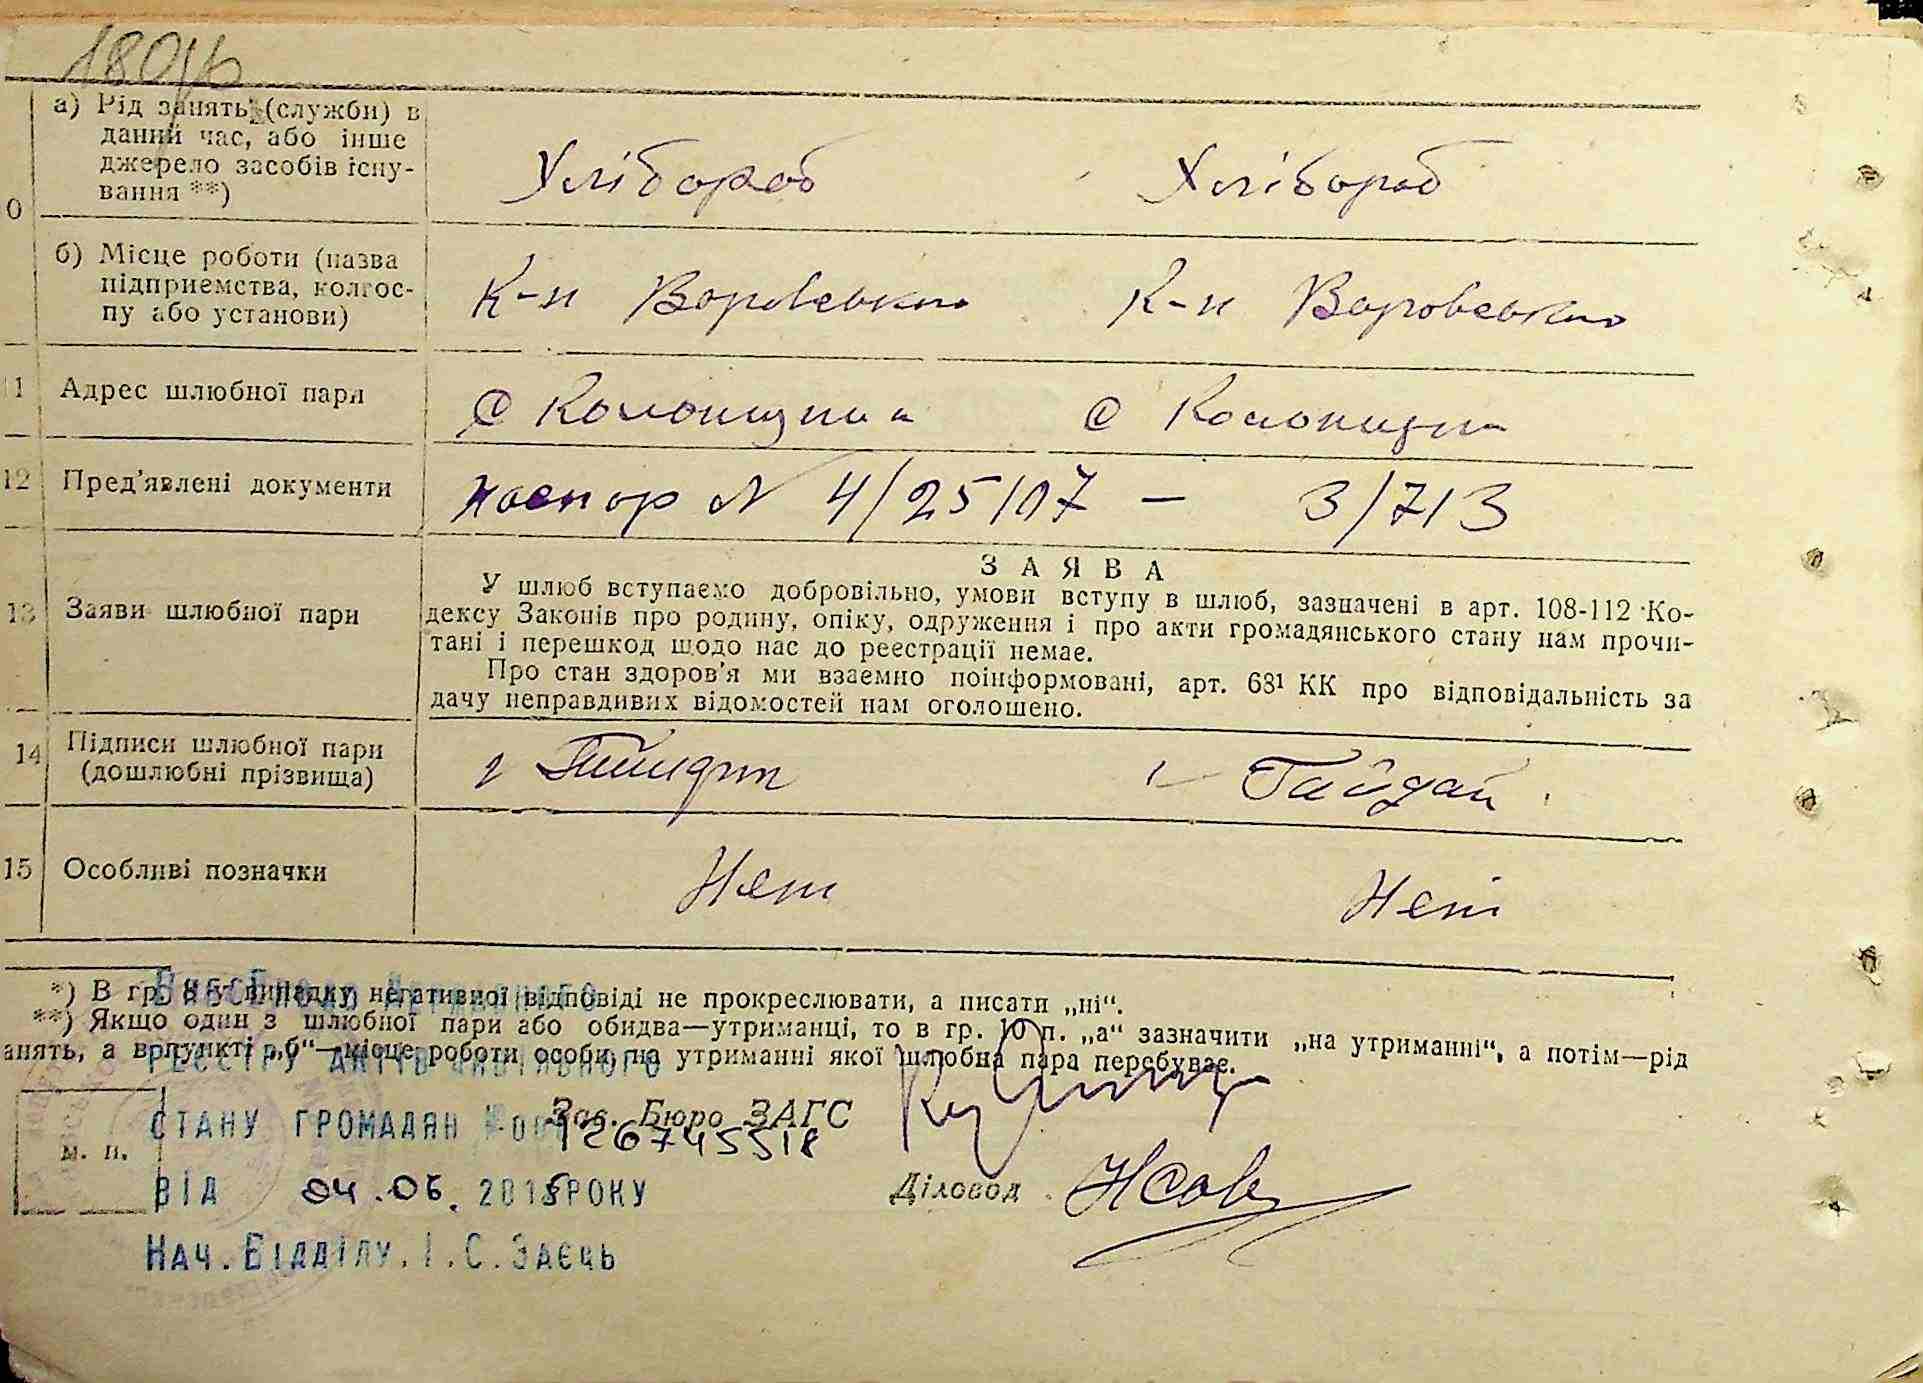 а) Рід занять (служби) в
даний час, або інше
джерело засобів існу-
вання **)
Хлібороб Хлібороб
0
б) Місце роботи (назва
підприємства, колгос-
пу або установи)
К-п Воровського К-п Воровського
11 Адрес шлюбної пари
с Колонщина с Колонщина
12 Пред'явлені документи
паспор № 4/25107 — 3/713
ЗАЯВА
13 Заяви шлюбної пари
У шлюб вступаємо добровільно, умови вступу в шлюб, зазначені в арт. 108-112 Ко-
дексу Законів про родину, опіку, одруження і про акти громадянського стану нам прочи-
тані і перешкод щодо нас до реєстрації немає.
Про стан здоров'я ми взаємно поінформовані, арт. 68¹ КК про відповідальність за
дачу неправдивих відомостей нам оголошено.
14 Підписи шлюбної пари
(дошлюбні прізвища)
Гайдай
15 Особливі позначки
Нет Нет
*) В гр. 8 у випадку негативної відповіді не прокреслювати, а писати „ні“.
**) Якщо один з шлюбної пари або обидва—утриманці, то в гр. 10 п. „а“ зазначити „на утриманні“, а потім—рід
анять, а в пункті „б“—місце роботи особи, на утриманні якої шлюбна пара перебуває.
Внесено до Державного
реєстру актів цивільного
стану громадян №00126745518
від 04.06.2015 року
Нач. Відділу. І.С.Заєць
м. п.
Зав. Бюро ЗАГС
Діловод